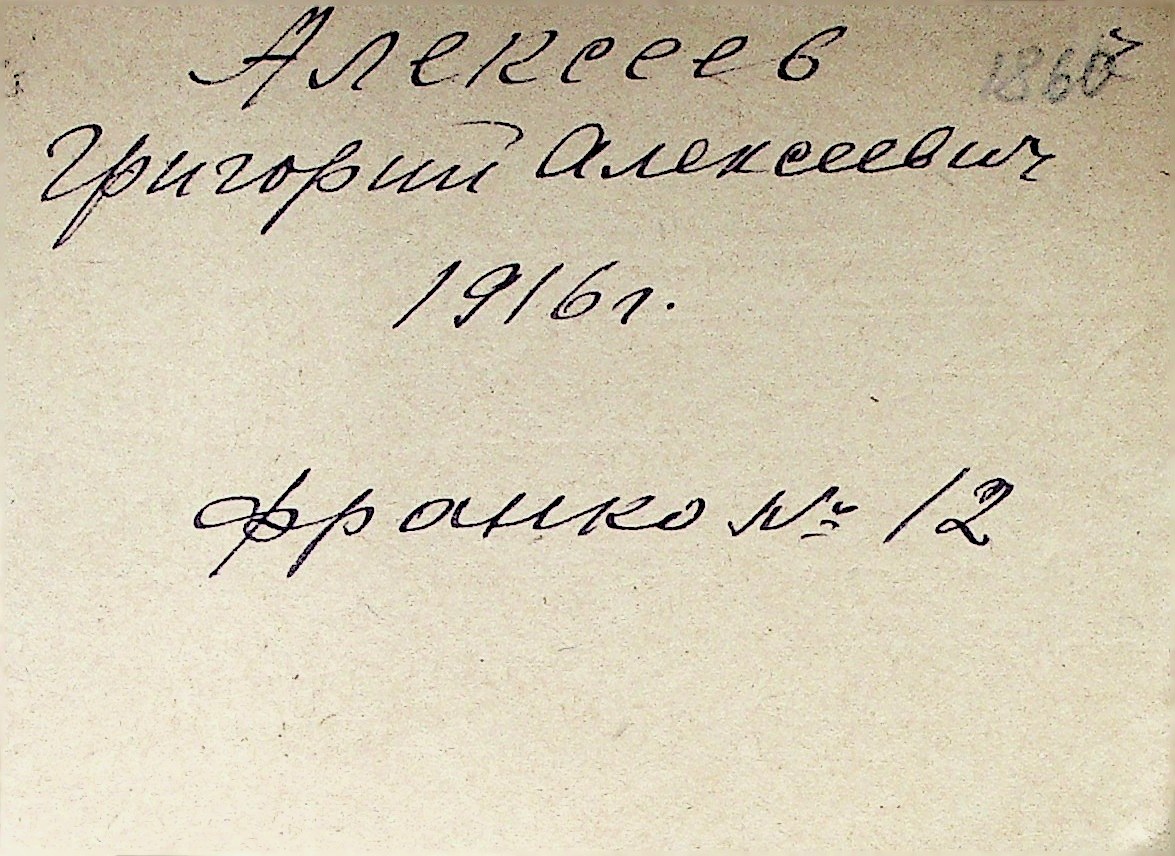 Алексеев
Григорий Алексеевич
1916г.
франко № 12